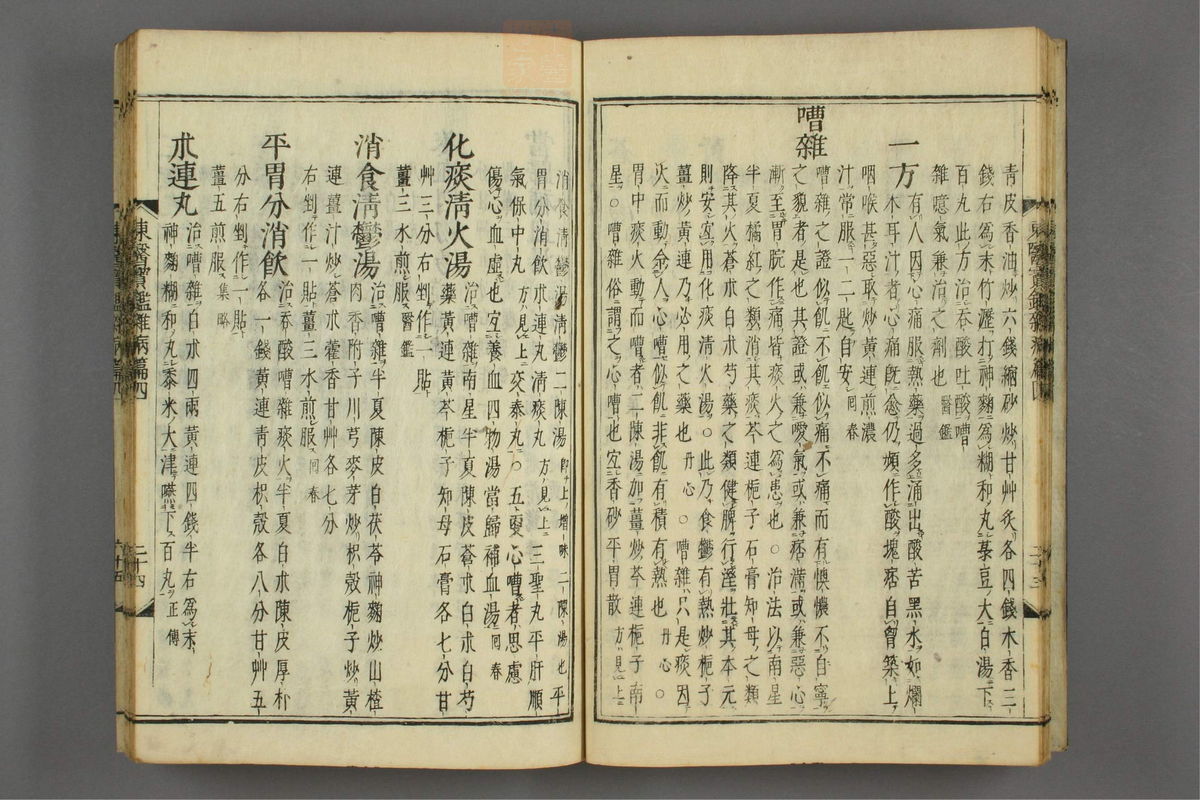 靑皮香油炒六錢縮砂炒甘艸炙各四錢木香三
錢右爲末竹瀝打神麴爲糊和丸菉豆大白湯下
百丸此方治呑酸吐酸嘈
雜噫氣兼治之劑也 醫鑑
一方 有人因心痛服熱藥過多涌出酸苦黑水如爛
木耳汁者心痛旣愈仍頻作酸塊痞自胷築上
咽喉甚惡取黃連煎濃
汁常服一二匙自安 回春
嘈雜
嘈雜之證似飢不飢似痛不痛而有懊憹不自寧
之貌者是也其證或兼噯氣或兼痞滿或兼惡心
漸至胃脘作痛皆痰火之爲患也○治法以南星
半夏橘紅之類消其痰芩連梔子石膏知母之類
降其火蒼朮白朮芍藥之類健脾行溼壯其本元
則安宜用化痰淸火湯○此乃食鬱有熱炒梔子
薑炒黃連乃必用之藥也 丹心 ○嘈雜只是痰因
火而動余人心嘈似飢非飢有積有熱也 丹心 ○
胃中痰火動而嘈者二陳湯加薑炒芩連梔子南
星○嘈雜俗謂之心嘈也宜香砂平胃散 方見上
消食淸鬱湯淸鬱二陳湯 卽上增味二陳湯也 平
胃分消飮朮連丸淸痰丸 方見上 三聖丸平肝順
氣保中丸 方見上 交泰丸○五更心嘈者思慮
傷心血虛也宜養血四物湯當歸補血湯 回春
化痰淸火湯 治嘈雜南星半夏陳皮蒼朮白朮白芍
藥黃連黃芩梔子知母石膏各七分甘
艸三分右剉作一貼
薑三水煎服 醫鑑
消食淸鬱湯 治嘈雜半夏陳皮白茯苓神麴炒山楂
肉香附子川芎麥芽炒枳殼梔子炒黃
連薑汁炒蒼朮藿香甘艸各七分
右剉作一貼薑三水煎服 回春
平胃分消飮 治呑酸嘈雜痰火半夏白朮陳皮厚朴
各一錢黃連靑皮枳殼各八分甘艸五
分右剉作一貼
薑五煎服 集略
朮連丸 治嘈雜白朮四兩黃連四錢半右爲末
神麴糊和丸黍米大津嚥下百丸 正傳
東醫寶鑑雜病篇四
二十四